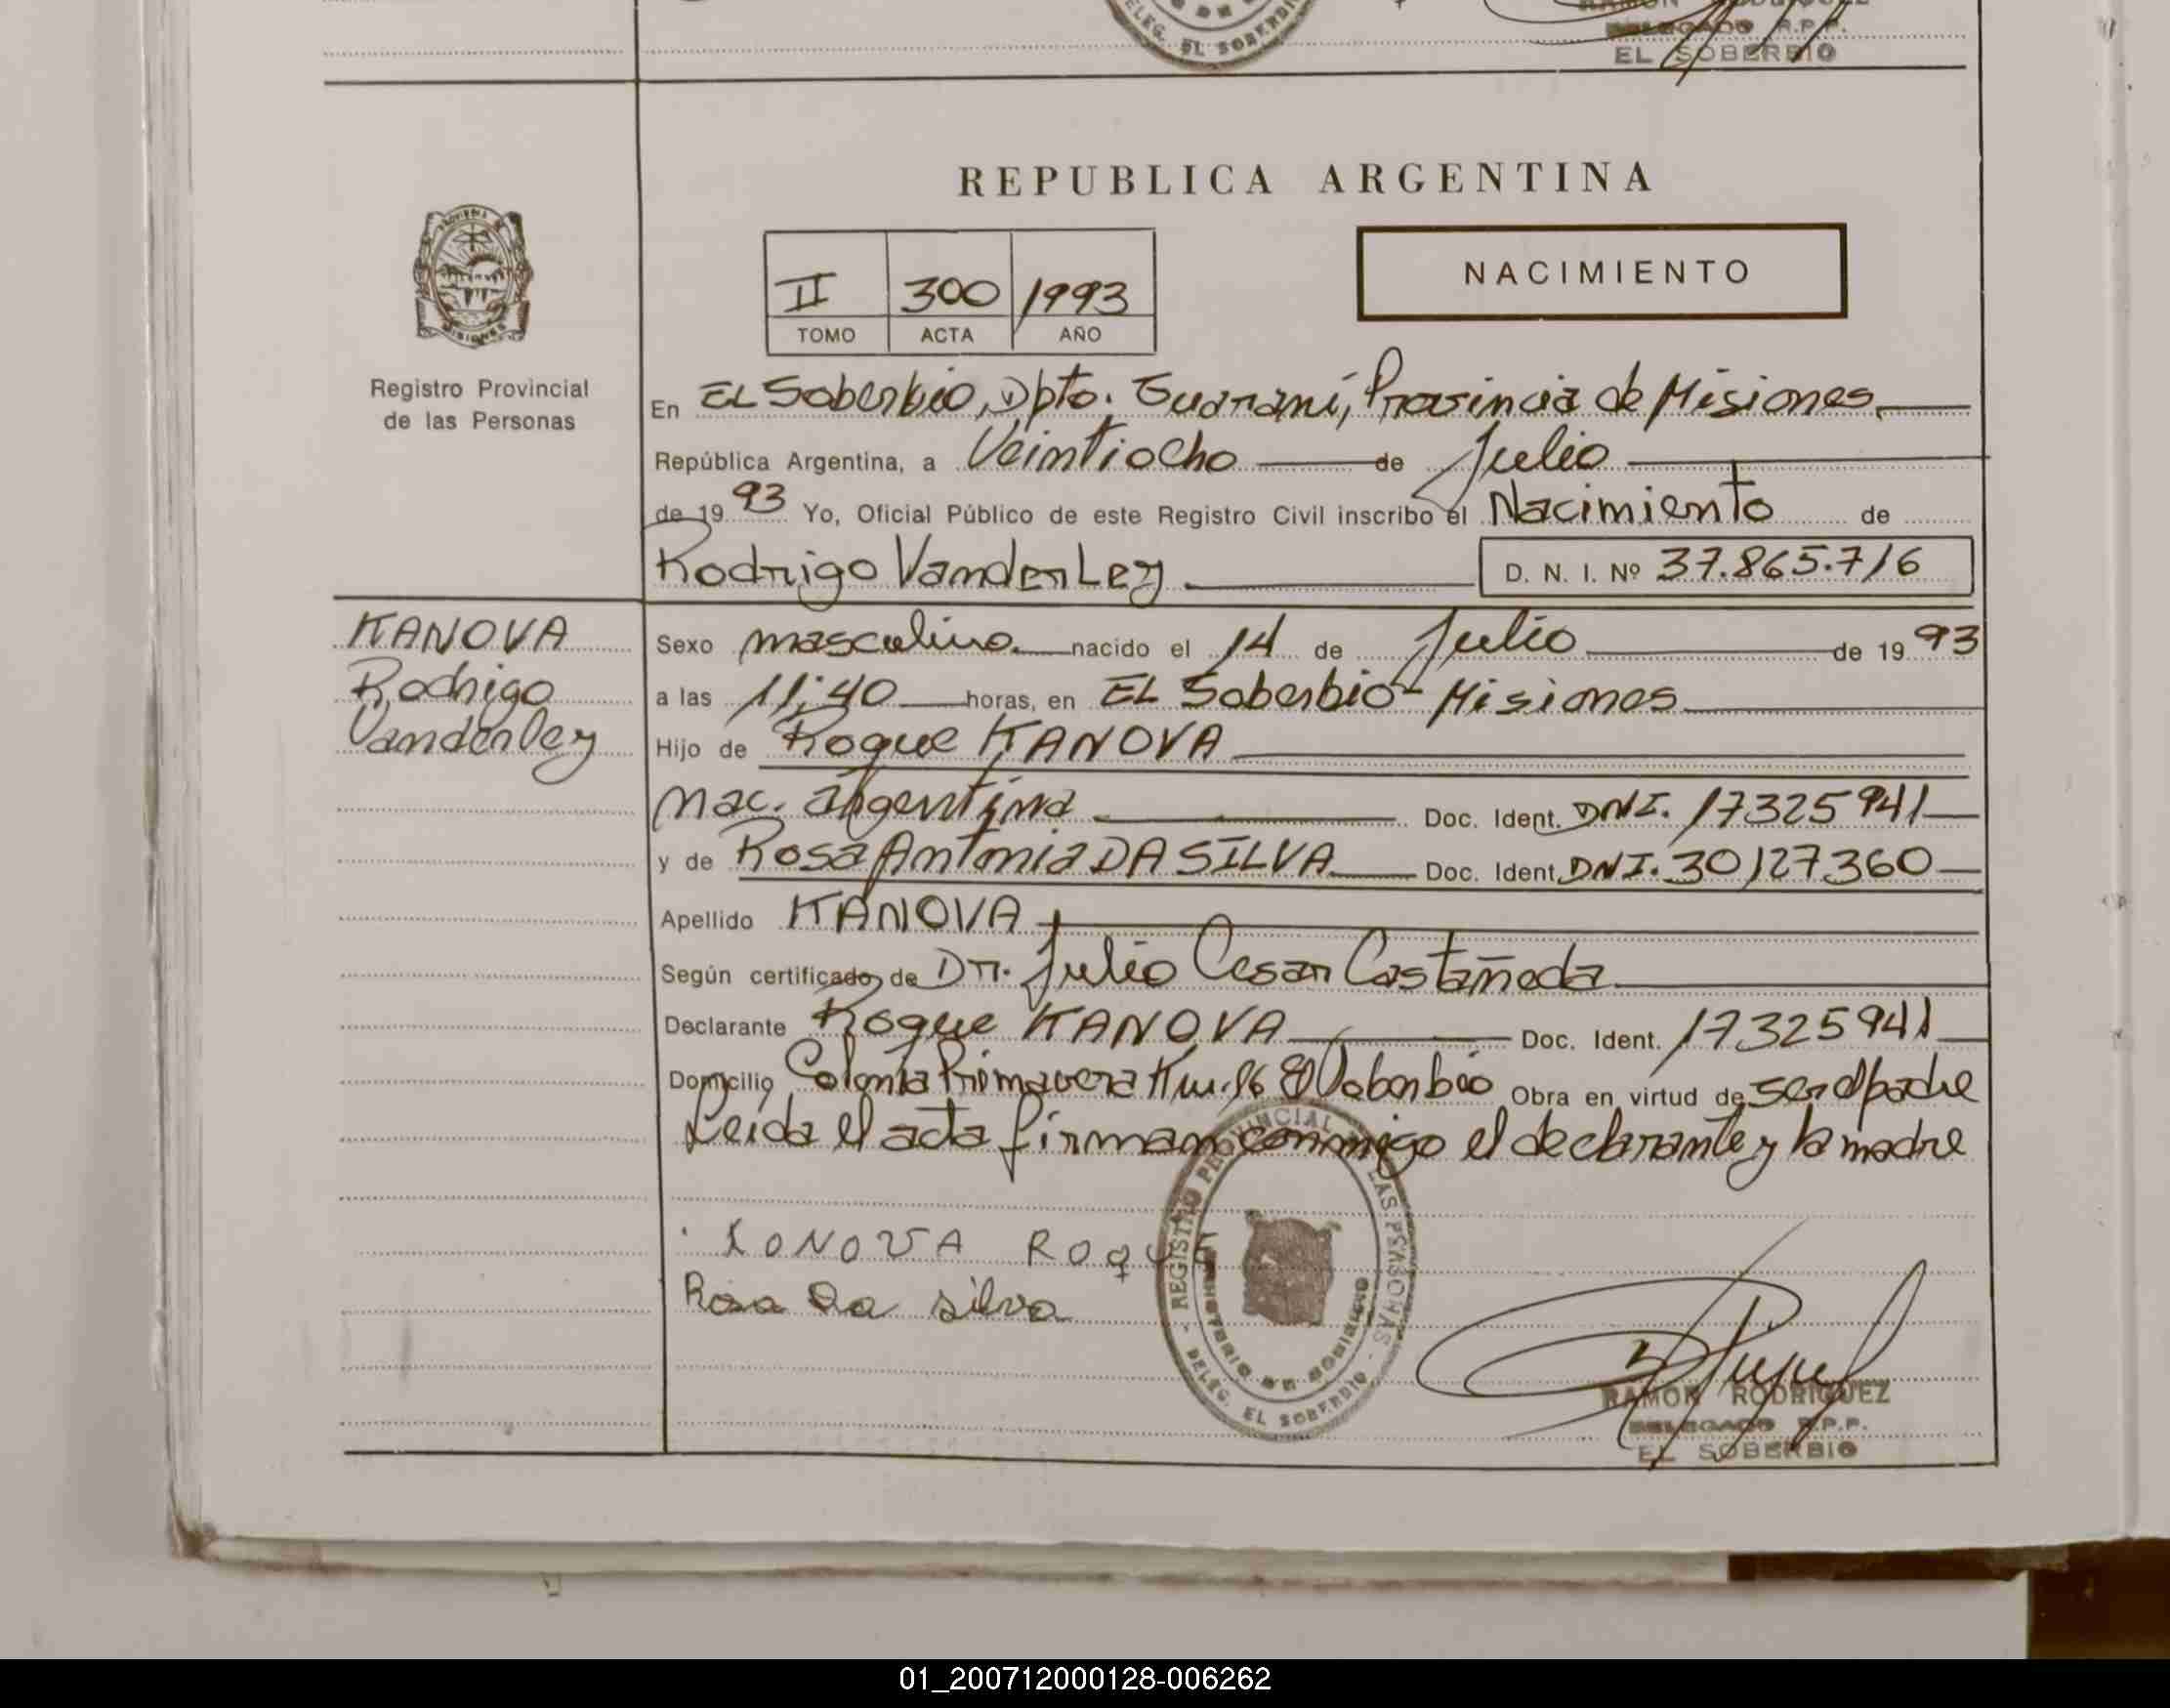 DELEG. EL SOBERBIO
EL SOBERBIO
REPUBLICA ARGENTINA
NACIMIENTO
II 300 1993
TOMO ACTA AÑO
PROVINCIA DE MISIONES
Registro Provincial
de las Personas
En EL Soberbio, Dpto. Guaraní, Provincia de Misiones
República Argentina, a Veintiocho de Julio
de 1993 Yo, Oficial Público de este Registro Civil inscribo el Nacimiento de
Rodrigo Vanderley D. N. I. Nº 37.865.716
KANOVA
Rodrigo
Vanderley
Sexo masculino nacido el 14 de Julio de 1993
a las 11:40 horas, en EL Soberbio - Misiones
Hijo de Roque KANOVA
Nac. argentina Doc. Ident. DNI. 17325941
y de Rosa Antonia DA SILVA Doc. Ident. DNI. 30127360
Apellido KANOVA
Según certificado de Dr. Julio Cesar Castañeda
Declarante Roque KANOVA Doc. Ident. 17325941
Domicilio Colonia Primavera Km. 16 El Soberbio Obra en virtud de ser el padre
Leida el acta firman conmigo el declarante y la madre
KONOVA ROQUE
Rosa Da silva
REGISTRO PROVINCIAL DE LAS PERSONAS
MINISTERIO DE GOBIERNO
DELEG. EL SOBERBIO
RAMON RODRIGUEZ
DELEGADO R.P.P.
EL SOBERBIO
01_200712000128-006262